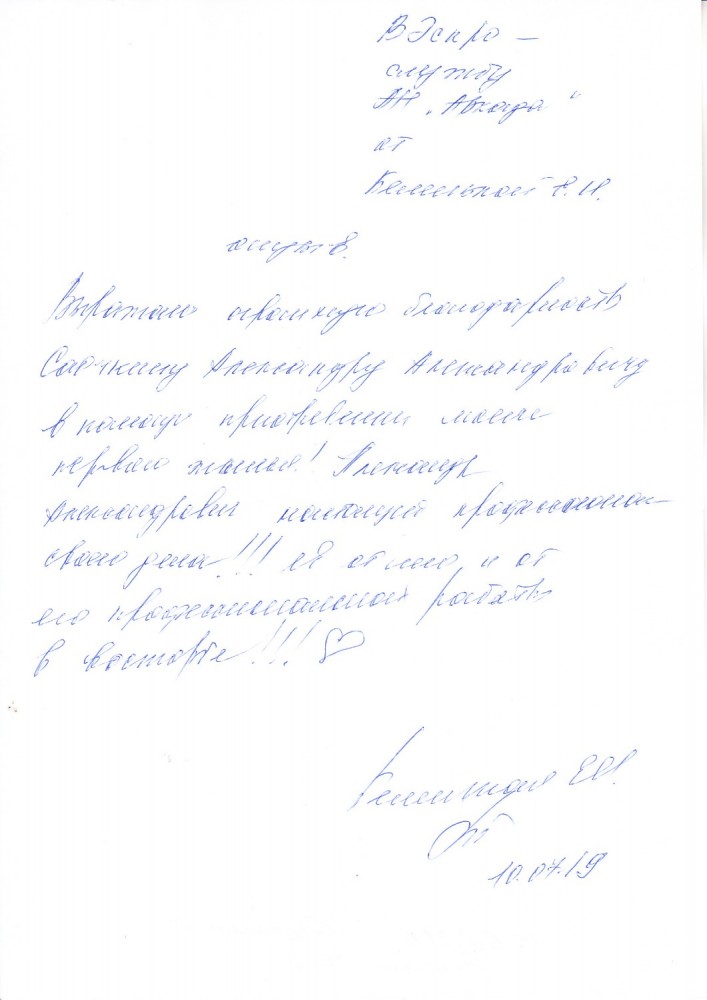 В Эскро-
службу
АН "Авкада"
от
Е. И.
отзыв.
Выражаю огромную благодарность
Савкину Александру Александровичу
в помощи приобретении моего
первого жилья! Александр
Александрович настоящий профессионал
своего дела!!! Я от него и от
его профессиональной работы
в восторге!!! ♡
Е.И.
10.07.19